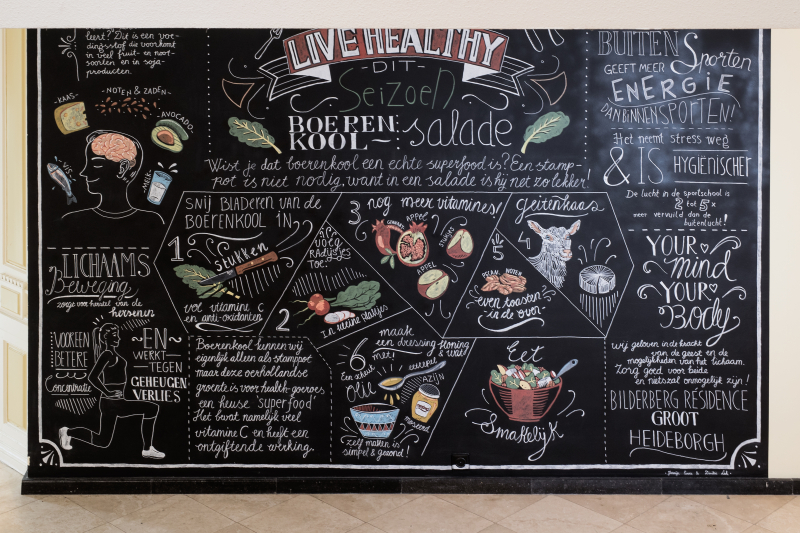 leert? Dit is een voe-
dingsstof die voorkomt
in veel fruit- en noot-
soorten en in soja-
producten.
KAAS
NOTEN & ZADEN
AVOCADO
VIS
MELK
LICHAAMS
Beweging
zorgt voor herstel van de
hersenen
VOOR EEN
BETERE
Concentratie
~EN~
WERKT
TEGEN
GEHEUGEN
VERLIES
LIVE HEALTHY
-DIT-
Seizoen
BOEREN
KOOL-
salade
Wist je dat boerenkool een echte superfood is? Een stamp-
pot is niet nodig, want in een salade is hij net zo lekker!
SNIJ BLADEREN VAN DE
BOERENKOOL IN
1
stukken
vol vitamine C
en anti-oxidanten
2
VOEG
RADIJSJES
TOE.
in kleine plakjes
3 nog meer vitamines!
APPEL
stukjes
APPEL
geitenkaas
4
5
PECAN NOTEN
even roosten
in de oven
Boerenkool kennen wij
eigenlijk alleen als stampot
maar deze oerhollandse
groente is voor health-goeroes
een heuse 'superfood'
Het bevat namelijk veel
vitamine C en heeft een
ontgiftende werking.
6 maak
een dressing
met!
Honing
Een scheut
OLIE
eetlepel
AZIJN
mosterd
zelf maken is
simpel & gezond!
Eet
Smakelijk
BUITEN Sporten
GEEFT MEER
ENERGIE
DAN BINNEN SPORTEN!
Het neemt stress weg
& IS HYGIËNISCHER
De lucht in de sportschool is
2 tot 5x
meer vervuild dan de
buitenlucht!
YOUR
mind
YOUR
Body
wij geloven in de kracht
van de geest en de
mogelijkheden van het lichaam.
Zorg goed voor beide
en niets zal onmogelijk zijn!
BILDERBERG RÉSIDENCE
GROOT
HEIDEBORGH